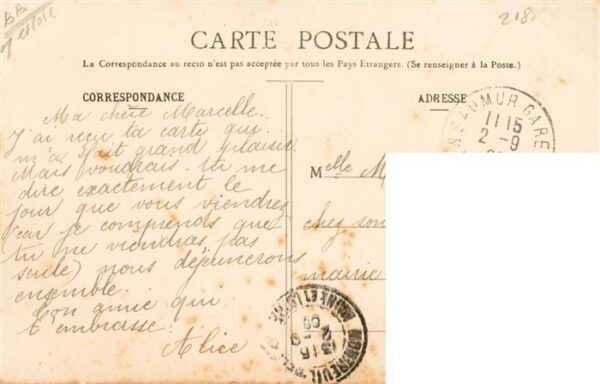 BB
2185
CARTE POSTALE
La Correspondance au recto n'est pas acceptée par tous les Pays Etrangers. (Se renseigner à la Poste.)
CORRESPONDANCE
Ma chère Marcelle.
J'ai reçu ta carte qui
m'a fait grand plaisir
Mais voudrais-tu me
dire exactement le
jour que vous viendrez
(car je comprends que
tu ne viendras pas
seule) nous déjeunerons
ensemble.
Ton amie qui
t'embrasse.
Alice
ADRESSE
SAUMUR-GARE
11 15
2-9
Melle M
chez son
mairie
MONTREUIL-BELLAY
MAINE ET LOIRE
13 15
2-9
09